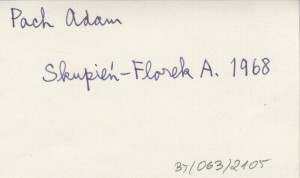 Pach Adam
Skupień-Florek A. 1968
37/063/2105